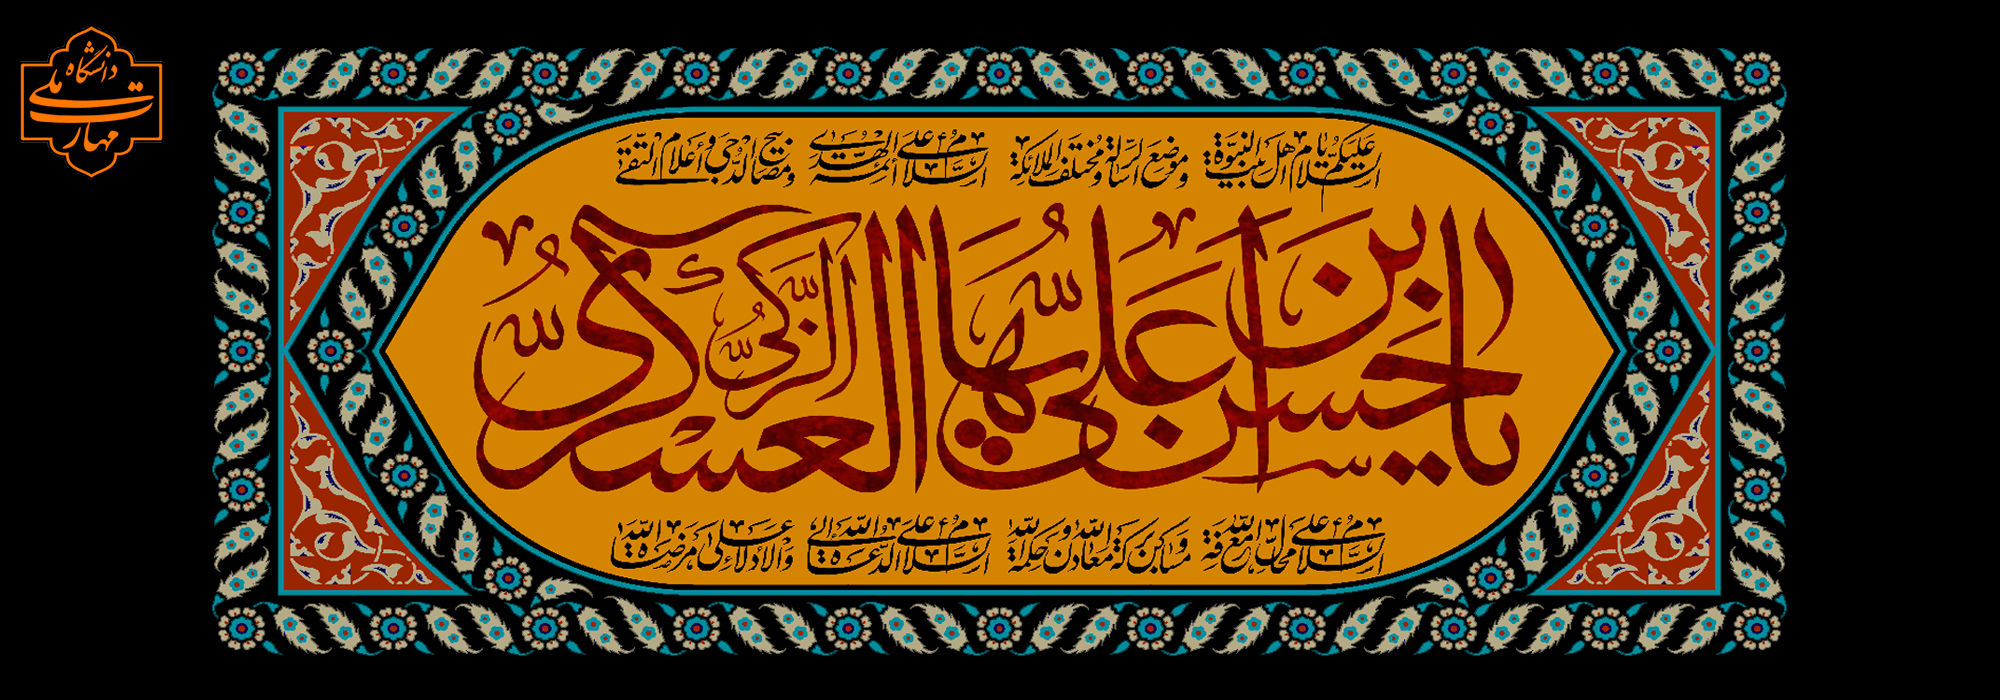 دانشگاه ملی مهارت
السلام علیکم یا اهل بیت النبوة وموضع الرسالة ومختلف الملائكة السلام علی ائمة الهدی ومصابیح الدجی وأعلام التقی
یا حسن ابن علی ایها الزکی العسکری
السلام علی محال معرفة الله ومساکن برکة الله ومعادن حکمة الله السلام علی الدعاة الی الله والادلاء علی مرضاة الله